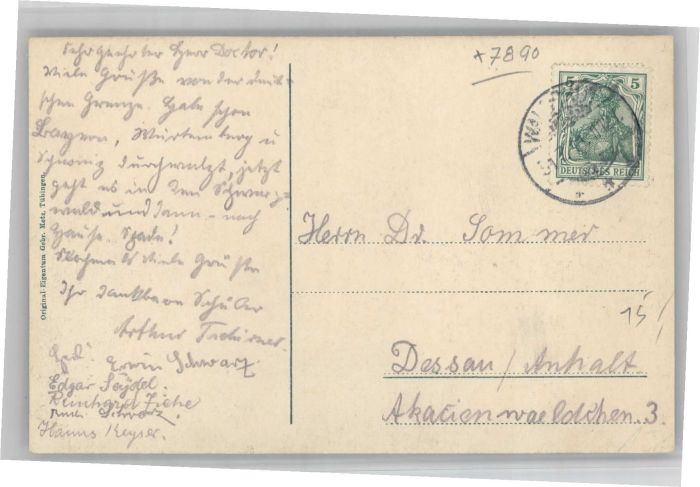 Sehr geehrter Herr Doctor!
Viele Grüße von der deut-
schen Grenze. Habe schon
Bayern, Würtemberg u
Schweiz durchwalzt, jetzt
geht es in den Schwarz-
wald und dann - nach
Hause. Schade!
Nochmals viele Grüße
Ihr dankbarer Schüler
Arthur
Erwin Schwarz
Edgar Seydel.
Reinhard Ziehe
Schwarz.
Hanns Keyser.
Original-Eigentum Gebr. Metz, Tübingen.
*7890
5 5
DEUTSCHES REICH
Herrn Dr. Sommer
15
Dessau/Anhalt
Akacienwaeldchen.3.